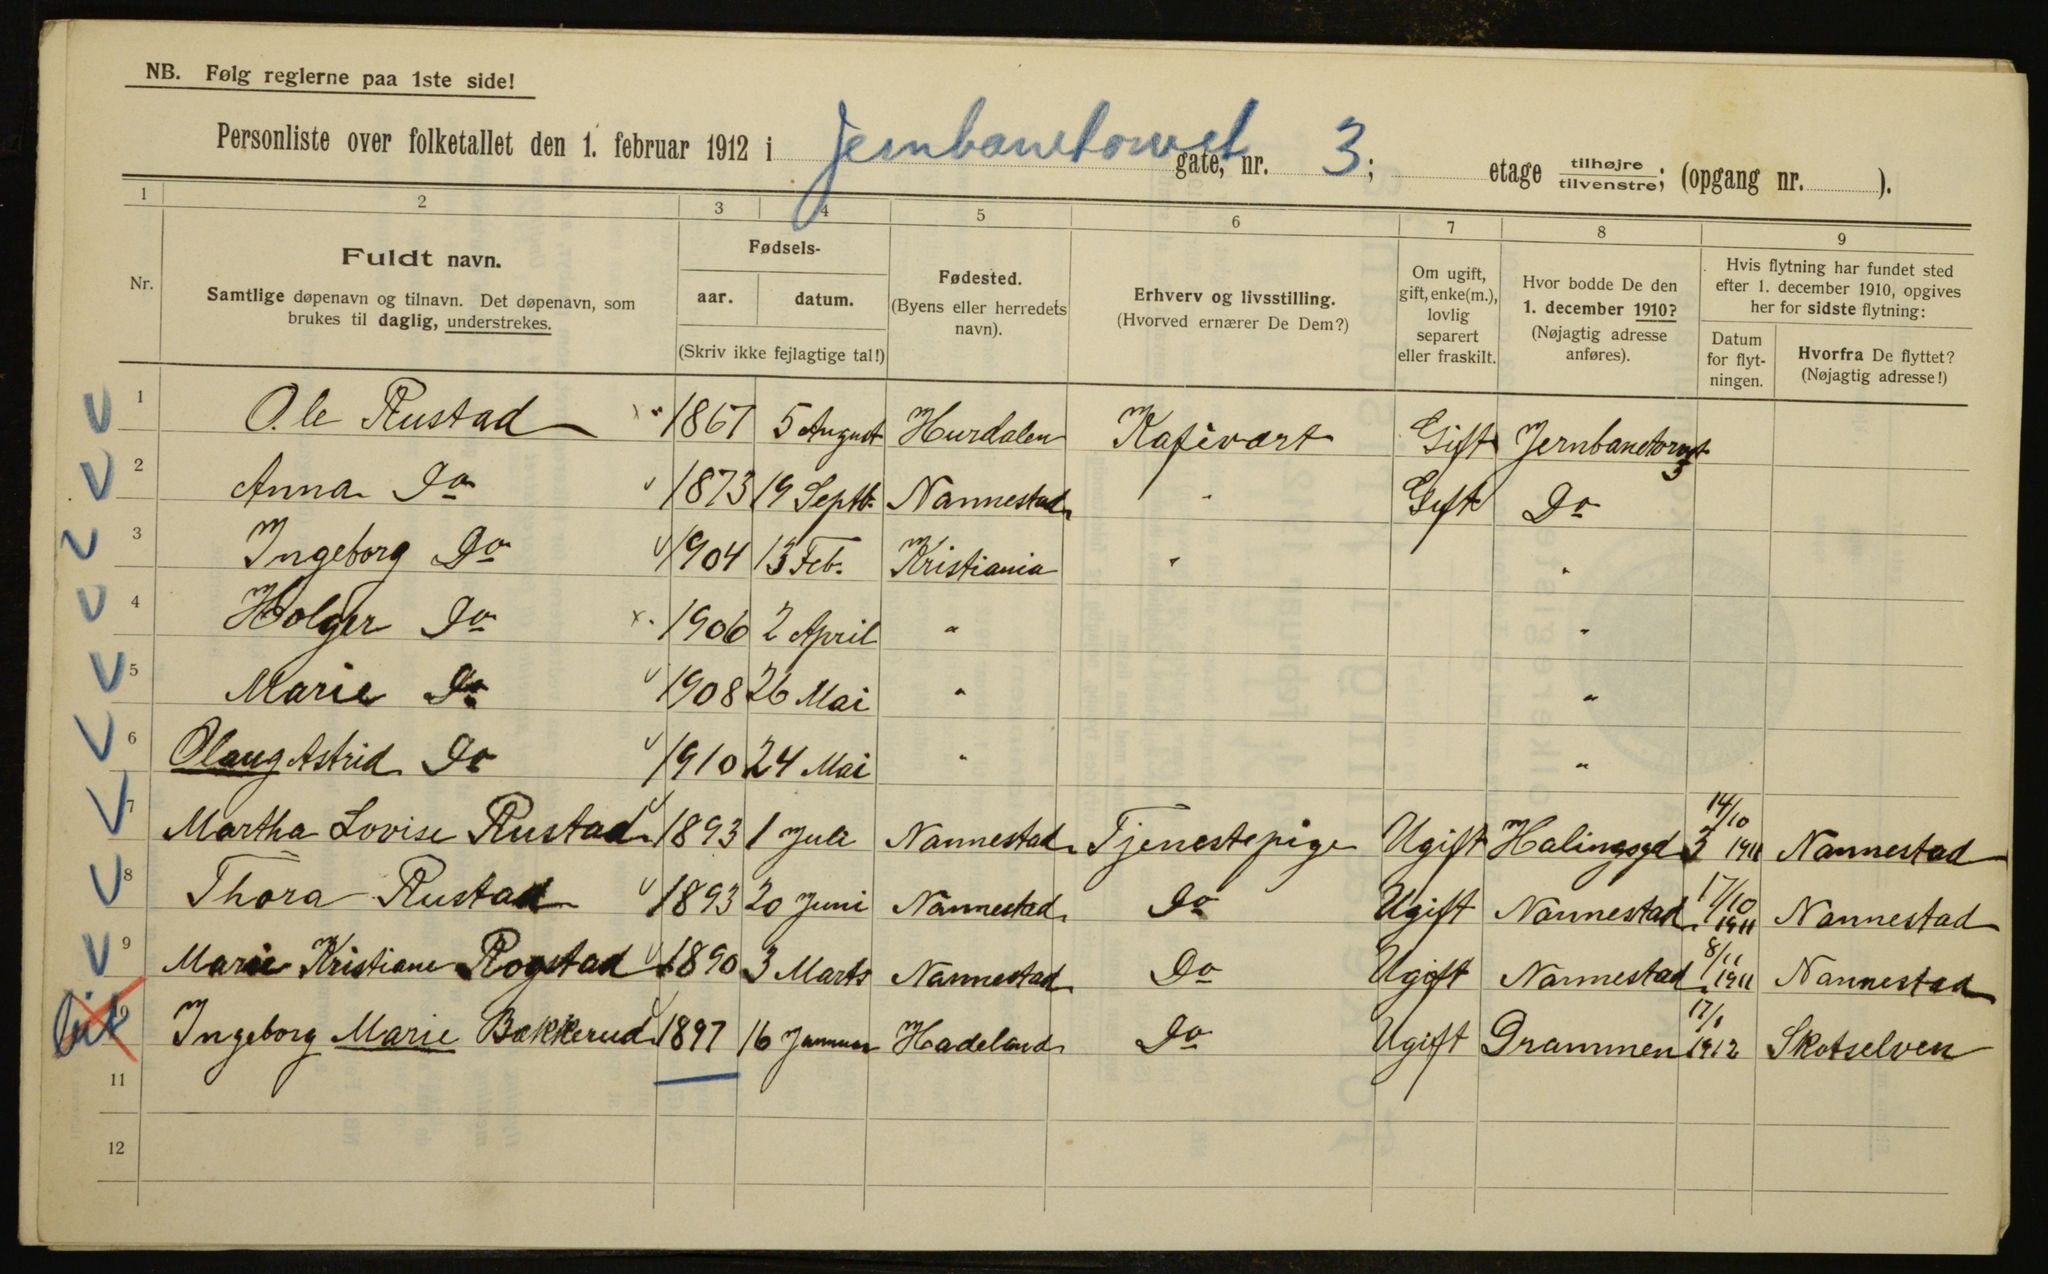 NB. Følg reglerne paa 1ste side!
Personliste over folketallet den 1. februar 1912 i Jernbanetorvet gate, nr. 3; etage tilhøjre/tilvenstre; (opgang nr. ).
1 2 3 4 5 6 7 8 9
Nr.
Fuldt navn.
Samtlige døpenavn og tilnavn. Det døpenavn, som
brukes til daglig, understrekes.
Fødsels-
aar. datum.
(Skriv ikke fejlagtige tal!)
Fødested.
(Byens eller herredets
navn).
Erhverv og livsstilling.
(Hvorved ernærer De Dem?)
Om ugift,
gift, enke(m.),
lovlig
separert
eller fraskilt.
Hvor bodde De den
1. december 1910?
(Nøjagtig adresse
anføres).
Hvis flytning har fundet sted
efter 1. december 1910, opgives
her for sidste flytning:
Datum
for flyt-
ningen.
Hvorfra De flyttet?
(Nøjagtig adresse!)
1 Ole Rustad 1867 5 August Hurdalen Kafévært Gift Jernbanetorvet 3
2 Anna Do 1873 19 Septb. Nannestad " Gift Do
3 Ingeborg Do 1904 13 Feb. Kristiania " "
4 Holger Do 1906 2 April " "
5 Marie Do 1908 26 Mai " "
6 Olaug Astrid Do 1910 24 Mai " "
7 Martha Lovise Rustad 1893 1 Juli Nannestad Tjenestepige Ugift Halingsgd 3 14/10 1911 Nannestad
8 Thora Rustad 1893 20 Juni Nannestad Do Ugift Nannestad 17/10 1911 Nannestad
9 Marie Kristiane Rogstad 1890 3 Marts Nannestad Do Ugift Nannestad 8/11 1911 Nannestad
Ingeborg Marie Bakkerud 1897 16 Januar Hadeland Do Ugift Drammen 17/1 1912 Skotselven
11
12